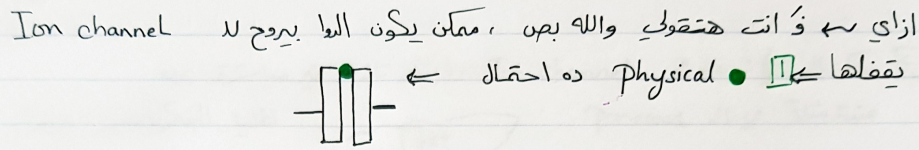 ازاي ← فـ أنت هتقولي والله بص ، ممكن يكون الدوا بيروح لـ Ion channel
يقفلها ⇐ [1] ● Physical ده احتمال ⇐